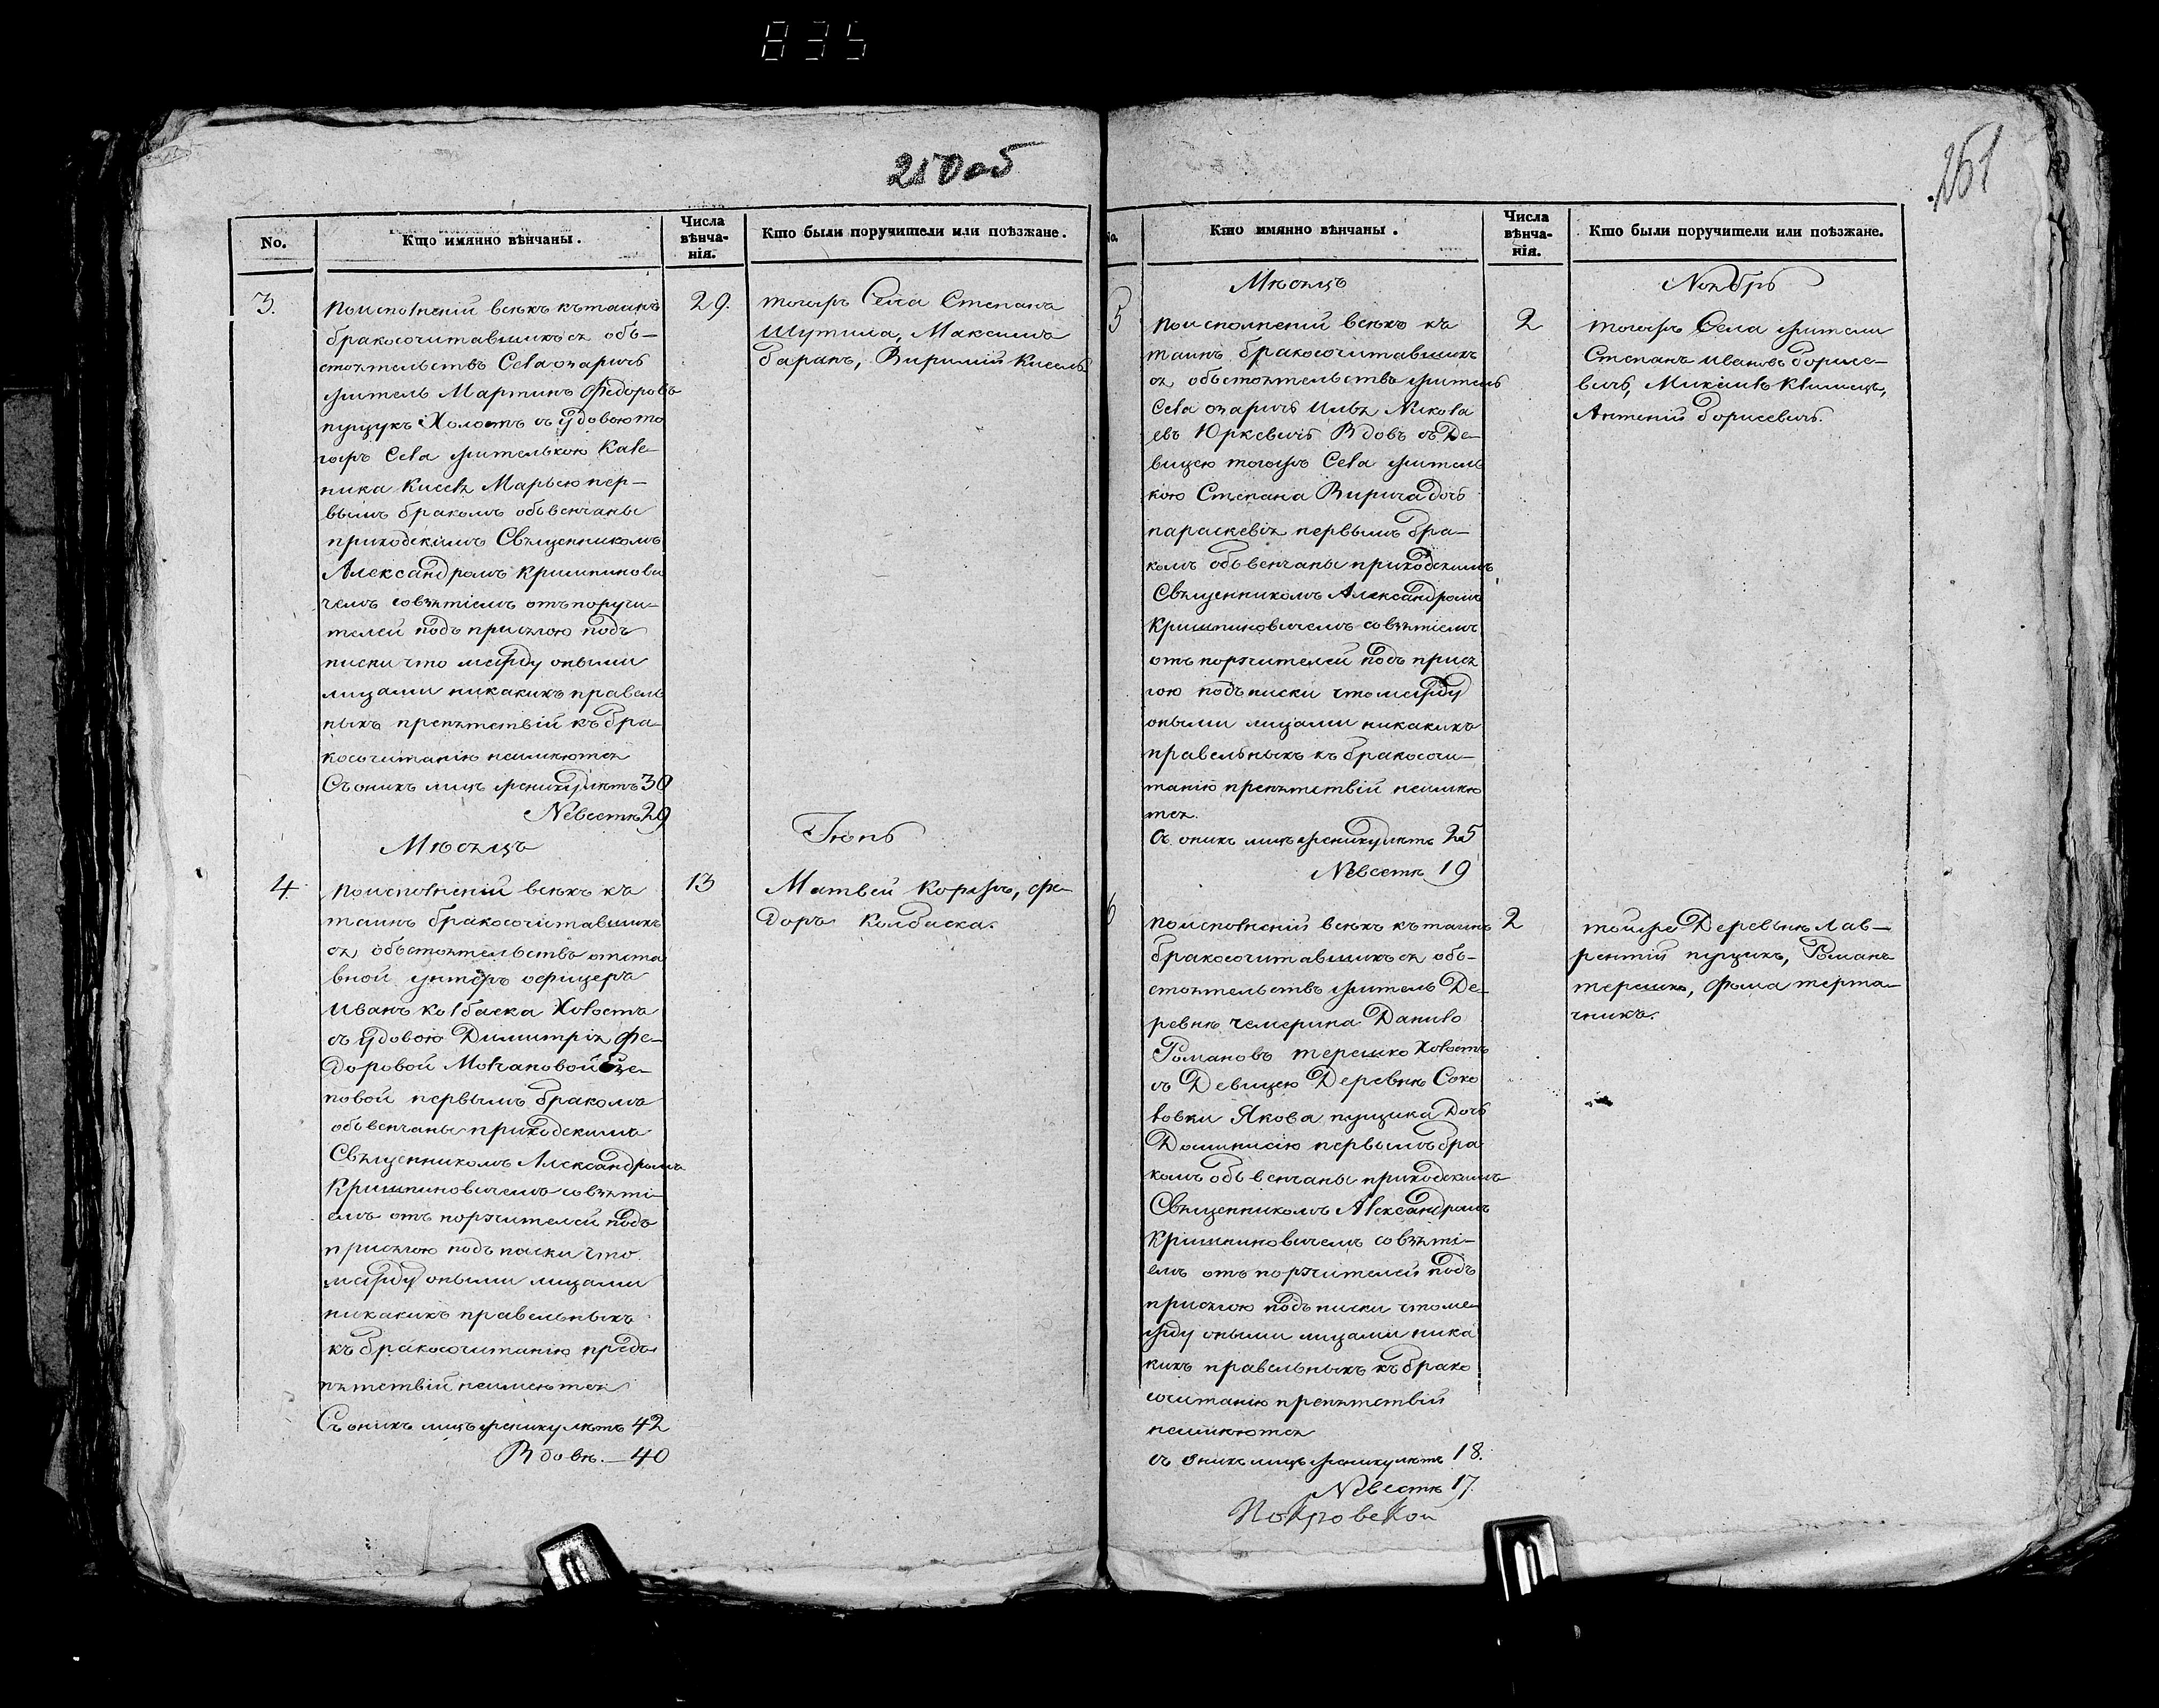 835
250 об
No.
Кто имянно вѣнчаны.
Числа
вѣнча-
нія.
Кто были поручители или поѣзжане.
3.
поисполненій всѣхъ къ таинъ
бракосочитавшихъся объ-
стоятельствъ Села озаричъ
житель Мартинъ Федоровъ
пуцукъ Холостъ съ удовою то
гожъ Села жителькою Кале-
ника Киселя Марьею пер-
вымъ бракомъ объвенчаны
приходскимъ Священникомъ
Александромъ Кришпинови
чемъ совзятіемъ отъ поручи-
телей подъ присягою подъ
писки что между оными
лицами никакихъ правель
ныхъ препятствій къ бра-
косочитанію неимѣются
Съ оныхъ лицъ жениху лѣтъ 30
Невестѣ 29
29.
тогожъ Села Степанъ
Шутила, Максимъ
Баранъ, Вирилій Кисель
Мѣсяцъ
Іюнь
4.
поисполненій всѣхъ къ
таинъ бракосочитавшихъ
ся объстоятельствъ отста
вной унтеръ офицеръ
Иванъ Колбаска Холостъ
съ удовою Димитрія Фе-
доровой Молчановой
новой первымъ бракомъ
объвенчаны приходскимъ
Священникомъ Александромъ
Кришпиновичемъ совзяті-
емъ отъ поручителей подъ
присягою подъ писки что
между оными лицами
никакихъ правельныхъ
къ бракосочитанію предъ
пятствій неимеются
Съ оныхъ лицъ жениху лѣтъ 42
Вдовѣ. — 40
13
Матвей Коражъ, фе-
доръ Колбаска.
251
No.
Кто имянно вѣнчаны.
Числа
вѣнча-
нія.
Кто были поручители или поѣзжане.
Мѣсяцъ
Ноябрь
5
поисполненій всѣхъ къ
таинъ бракосочитавшихъ
ся объстоятельствъ житель
Села озаричъ Илья Никола
евъ Юркевичъ Вдовъ съ Де-
вицею тогожъ Села житель
кою Степана Вирича дочь
параскевія первымъ бра-
комъ объвенчаны приходскимъ
Священникомъ Александромъ
Кришпиновичемъ совзятіемъ
отъ поручителей подъ прися
гою подъ писки что между
оными лицами никакихъ
правельныхъ къ бракосочи-
танію препятствій неимѣю
тся.
съ оныхъ лицъ жениху лѣтъ 25
Невестѣ 19
2
тогожъ Села жители
Степанъ Ивановъ Борисе-
вичъ, Михаилъ Климецъ,
Антоній Борисевичъ.
6
поисполненій всѣхъ къ таинъ
бракосочитавшихъся объ-
стоятельствъ житель Де-
ревнѣ чемерина Данило
Романовъ терешко Холостъ
съ Девицею Деревнѣ Соко
ловки Якова пуцика дочь
Домникію первымъ бра
комъ объвенчаны приходскимъ
Священникомъ Александромъ
Кришпиновичемъ совзяті-
емъ отъ поручителей подъ
присягою подъ писки что ме
жду оными лицами ника
кихъ правельныхъ къ брако
сочитанію препятствій
неимѣются
съ оныхъ лицъ жениху лѣтъ 18.
Невестѣ 17.
Покровской
2
тойже Деревнѣ Лав-
рентій пуцикъ, Романъ
терешко, фома терта-
чникъ.